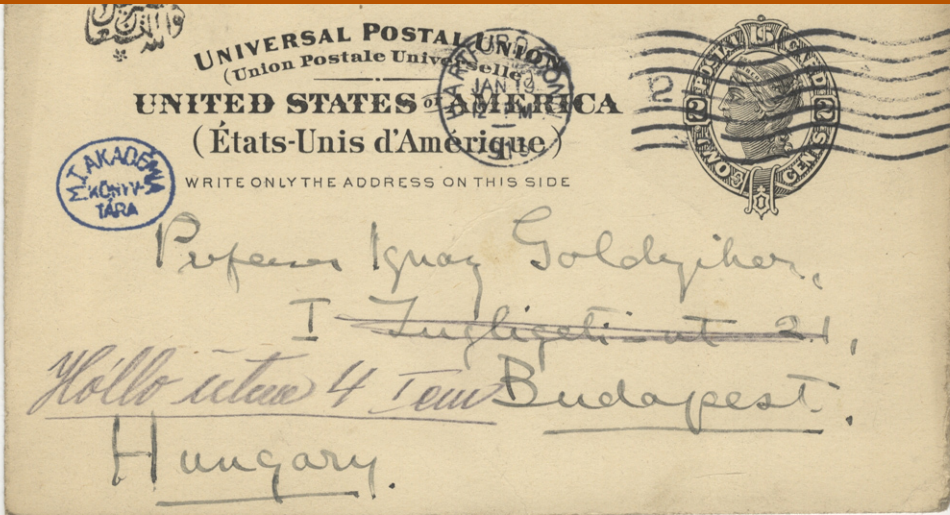 UNIVERSAL POSTAL UNION
(Union Postale Universelle)
UNITED STATES OF AMERICA
(États-Unis d'Amérique)
WRITE ONLY THE ADDRESS ON THIS SIDE
HARTFORD CONN
JAN 19
12 M
2
POSTAL CARD
2 2
TWO CENTS
M.T. AKADÉMIA
KÖNYV-
TÁRA
Professor Ignaz Goldziher,
I Zugligeti-ut 21,
Hólló utca 4 I em
Budapest.
Hungary.